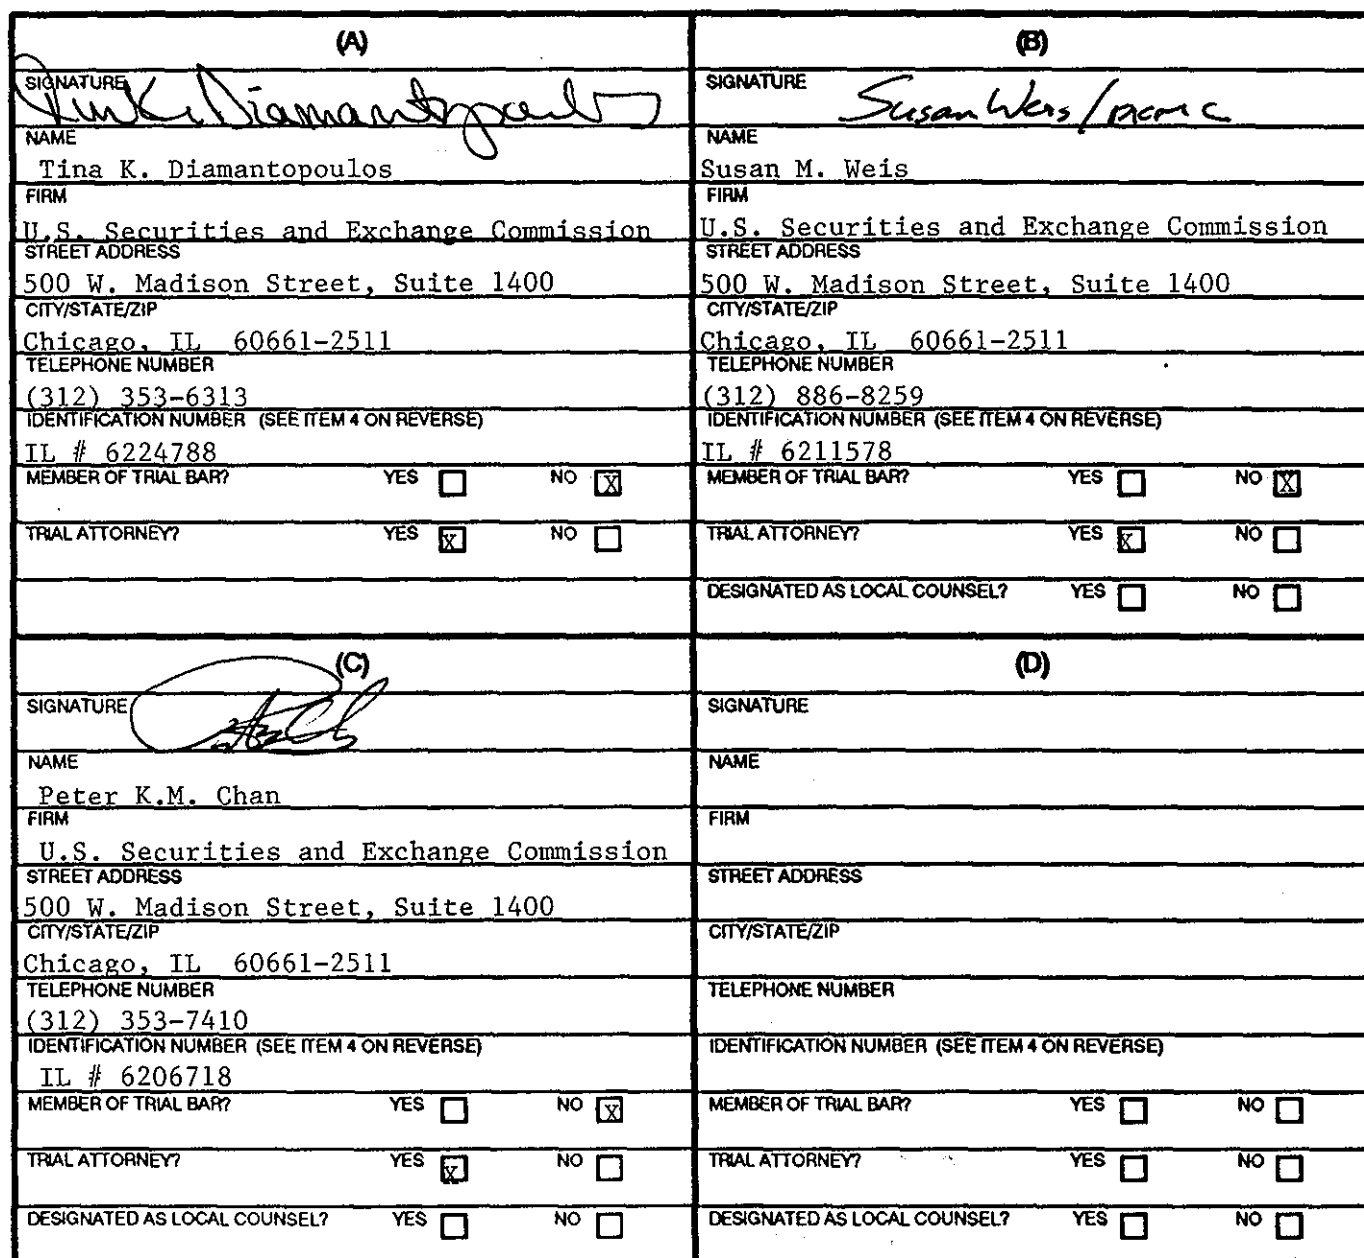 (A)
SIGNATURE
Tina K. Diamantopoulos
NAME
Tina K. Diamantopoulos
FIRM
U.S. Securities and Exchange Commission
STREET ADDRESS
500 W. Madison Street, Suite 1400
CITY/STATE/ZIP
Chicago, IL 60661-2511
TELEPHONE NUMBER
(312) 353-6313
IDENTIFICATION NUMBER (SEE ITEM 4 ON REVERSE)
IL # 6224788
MEMBER OF TRIAL BAR? YES NO X
TRIAL ATTORNEY? YES X NO
(B)
SIGNATURE
Susan Weis /
NAME
Susan M. Weis
FIRM
U.S. Securities and Exchange Commission
STREET ADDRESS
500 W. Madison Street, Suite 1400
CITY/STATE/ZIP
Chicago, IL 60661-2511
TELEPHONE NUMBER
(312) 886-8259
IDENTIFICATION NUMBER (SEE ITEM 4 ON REVERSE)
IL # 6211578
MEMBER OF TRIAL BAR? YES NO X
TRIAL ATTORNEY? YES X NO
DESIGNATED AS LOCAL COUNSEL? YES NO
(C)
SIGNATURE
NAME
Peter K.M. Chan
FIRM
U.S. Securities and Exchange Commission
STREET ADDRESS
500 W. Madison Street, Suite 1400
CITY/STATE/ZIP
Chicago, IL 60661-2511
TELEPHONE NUMBER
(312) 353-7410
IDENTIFICATION NUMBER (SEE ITEM 4 ON REVERSE)
IL # 6206718
MEMBER OF TRIAL BAR? YES NO X
TRIAL ATTORNEY? YES X NO
DESIGNATED AS LOCAL COUNSEL? YES NO
(D)
SIGNATURE
NAME
FIRM
STREET ADDRESS
CITY/STATE/ZIP
TELEPHONE NUMBER
IDENTIFICATION NUMBER (SEE ITEM 4 ON REVERSE)
MEMBER OF TRIAL BAR? YES NO
TRIAL ATTORNEY? YES NO
DESIGNATED AS LOCAL COUNSEL? YES NO